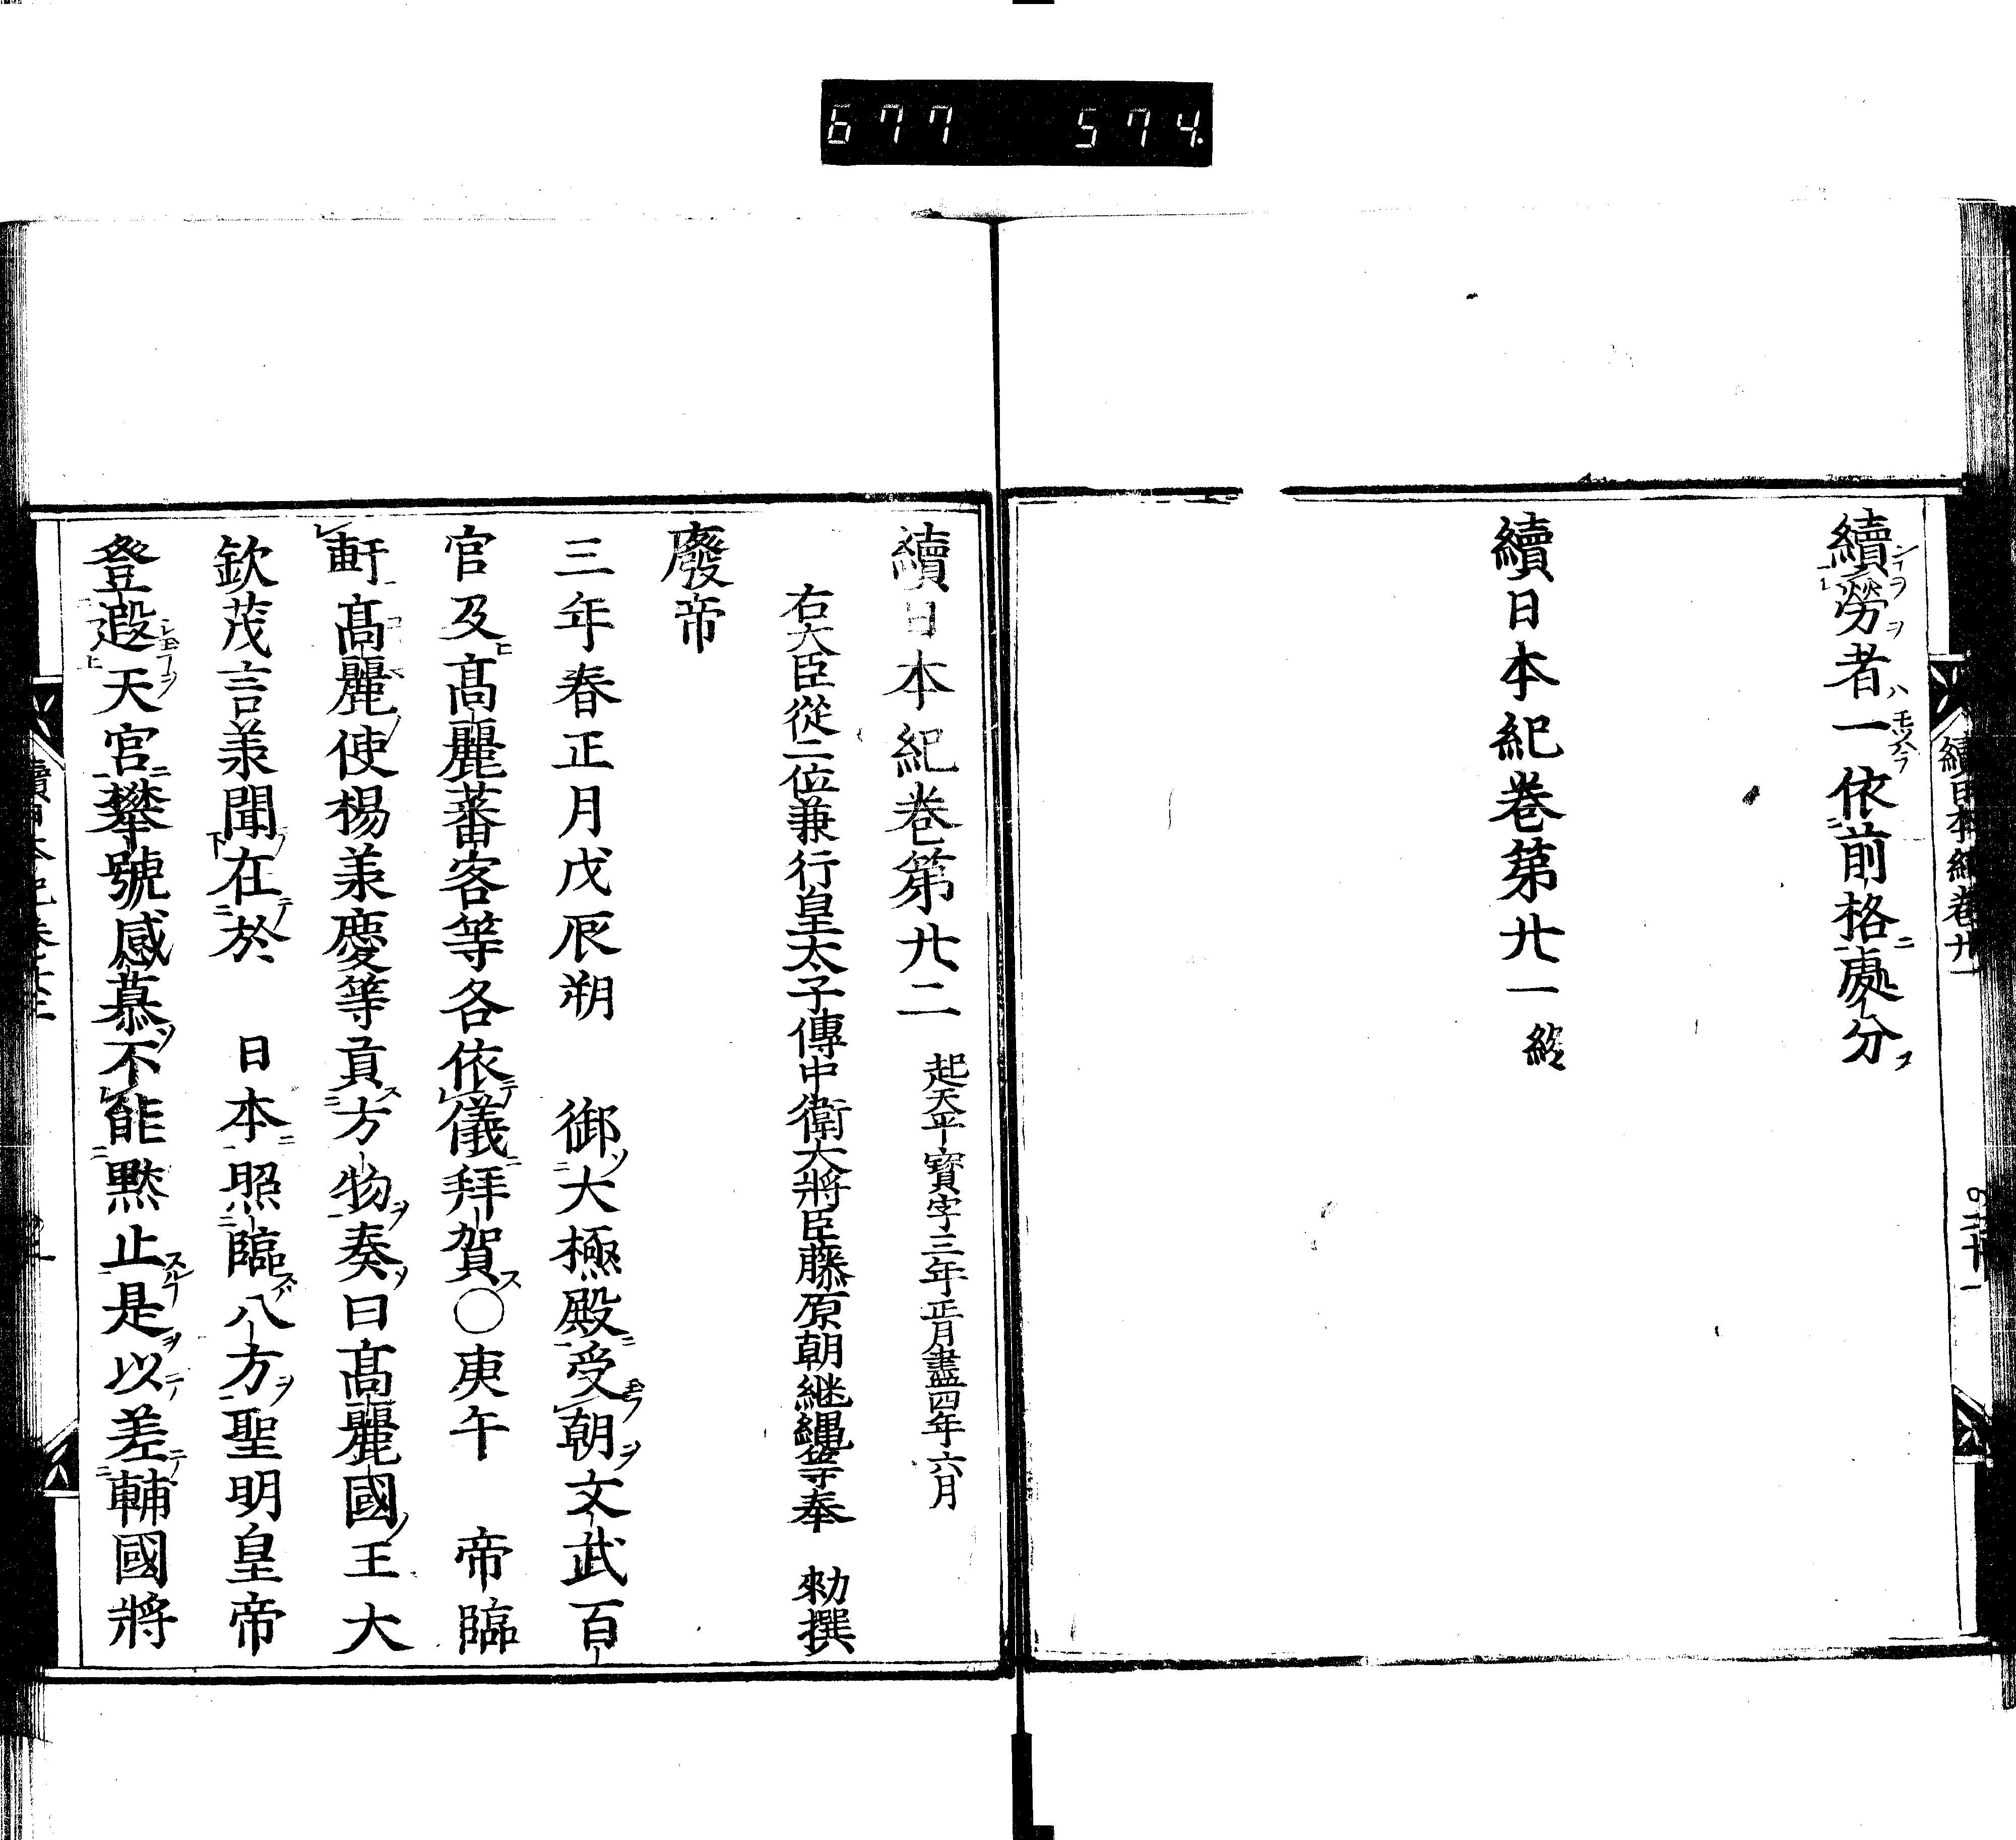 677 574
續勞者一依前格處分
續日本紀卷第廿一終
續日本紀卷第廿二 起天平寶字三年正月盡四年六月
右大臣從二位兼行皇太子傳中衛大將臣藤原朝継縄等奉 勅撰
廢帝
三年春正月戊辰朔 御大極殿受朝文武百
官及髙麗蕃客等各依儀拜賀○庚午 帝臨
軒髙麗使楊承慶等貢方物奏曰髙麗國王大
欽茂言承聞在於 日本照臨八方聖明皇帝
登遐天宮攀號感慕不能黙止是以差輔國將